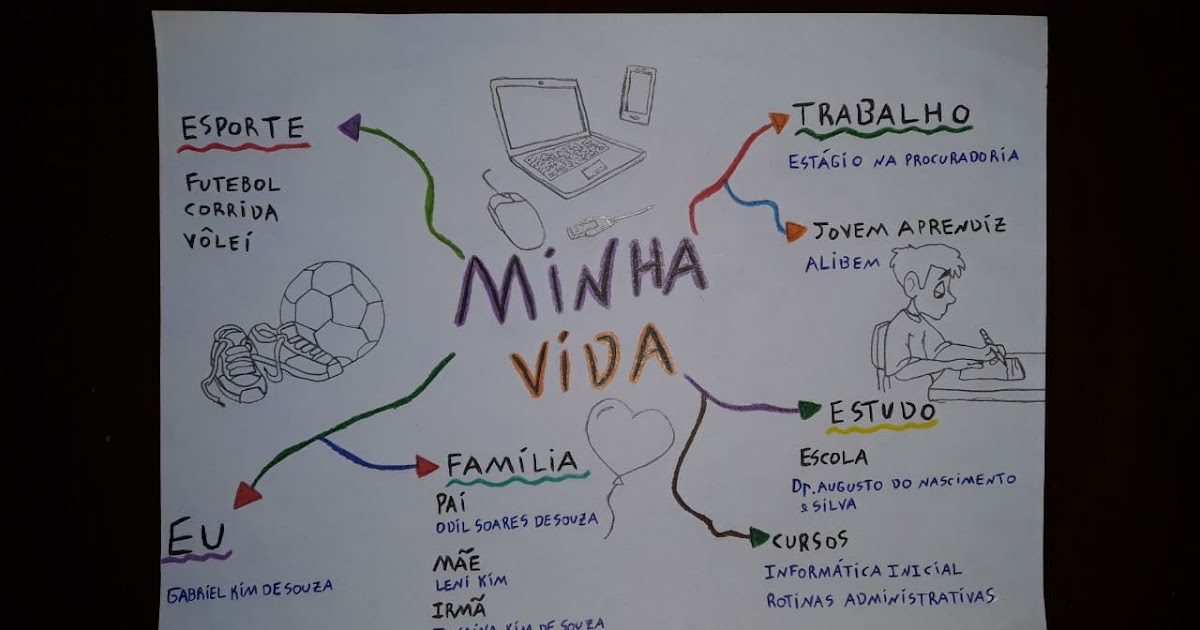 MINHA
VIDA
ESPORTE
FUTEBOL
CORRIDA
VÔLEI
TRABALHO
ESTÁGIO NA PROCURADORIA
JOVEM APRENDIZ
ALIBEM
ESTUDO
ESCOLA
Dr. AUGUSTO DO NASCIMENTO
e SILVA
CURSOS
INFORMÁTICA INICIAL
ROTINAS ADMINISTRATIVAS
FAMÍLIA
PAÍ
ODIL SOARES DE SOUZA
MÃE
LENI KIM
IRMÃ
KIM DE SOUZA
EU
GABRIEL KIM DE SOUZA